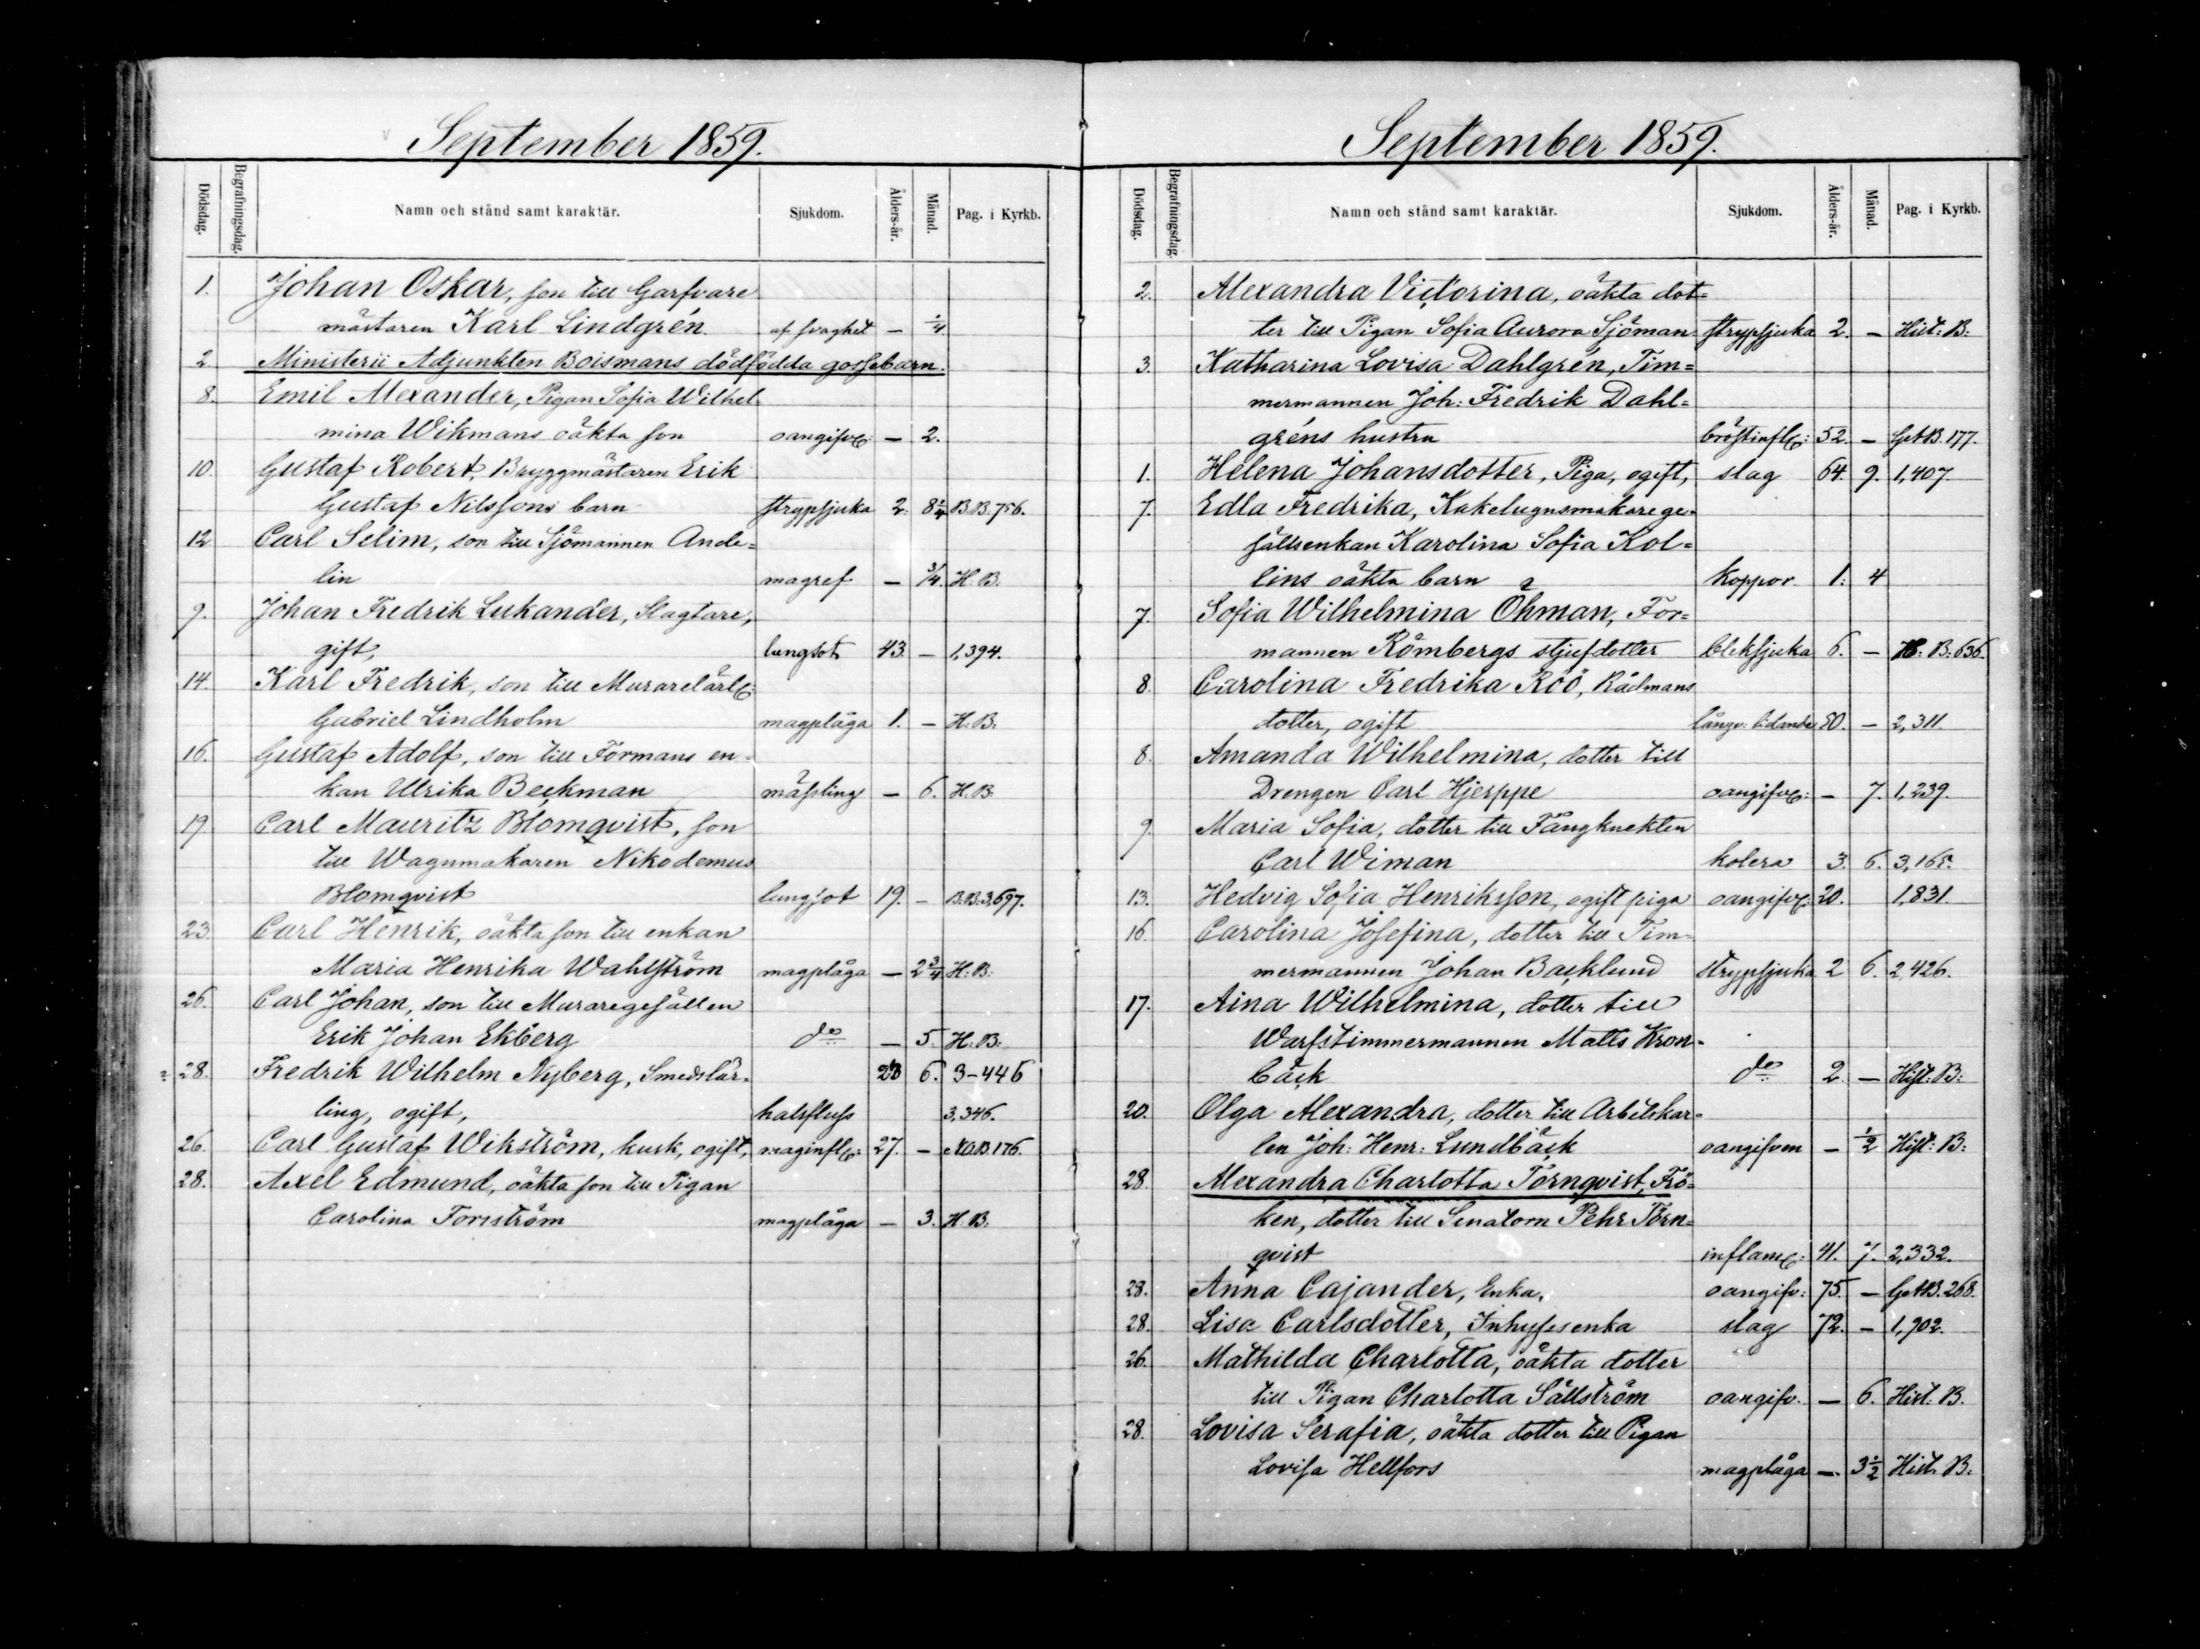 September 1859.
Dödsdag. Begrafningsdag. Namn och stånd samt karaktär. Sjukdom. Ålders-år. Månad. Pag. i Kyrkb.
1. Johan Oskar, son till Garfvare
mästaren Karl Lindgrén af svaghet — 1/4
2 Ministerii Adjunkten Boismans dödfödda gossebarn.
8. Emil Alexander, Pigan Sofia Wilhel
mina Wikmans oäkta son oangifv: — 2.
10. Gustaf Robert, Bryggmästaren Erik
Gustaf Nilssons barn strypsjuka 2. 8 1/4 B.B. 756.
12 Carl Selim, son till Sjömannen Ande=
lin magref — 3/4. H. B.
9. Johan Fredrik Lukander, Slagtare,
gift, lungsot 43 — 1,394.
14. Karl Fredrik, son till Murarelärl:
Gabriel Lindholm magplåga 1. — H. B.
16. Gustaf Adolf, son till Formans en=
kan Ulrika Beckman mässling — 6. H. B.
19. Carl Mauritz Blomqvist, son
till Wagnmakaren Nikodemus
Blomqvist lungsot 19. — B.B. 3,697.
23. Carl Henrik, oäkta son till enkan
Maria Henrika Wahlström magplåga — 2 3/4 H. B.
26. Carl Johan, son till Muraregesällen
Erik Johan Ekberg do — 5. H. B.
28. Fredrik Wilhelm Nyberg, Smedslär= 23 6. 3-446
ling, ogift, halsfluss 3,346.
26. Carl Gustaf Wikström, kusk, ogift, maginfl: 27. — N.O.B. 176.
28. Axel Edmund, oäkta son till Pigan
Carolina Forsström magplåga — 3. H. B.
September 1859.
Dödsdag. Begrafningsdag. Namn och stånd samt karaktär. Sjukdom. Ålders-år. Månad. Pag. i Kyrkb.
2. Alexandra Victorina, oäkta dot=
ter till Pigan Sofia Aurora Sjöman strypsjuka 2. — Hist: B:
3. Katharina Lovisa Dahlgrén, Tim=
mermannen Joh: Fredrik Dahl=
gréns hustru bröstinfl: 52. — GetB. 177.
1. Helena Johansdotter, Piga, ogift, slag 64. 9. 1,407.
7. Edla Fredrika, Kakelugnsmakarege=
sällsenkan Karolina Sofia Kol=
lins oäkta barn koppor 1. 4
7. Sofia Wilhelmina Öhman, For=
mannen Römbergs stjufdotter bleksjuka 6. — H. B. 636.
8. Carolina Fredrika Röö, Rådmans
dotter, ogift långv: lidande 80. — 2,311.
8. Amanda Wilhelmina, dotter till
Drengen Carl Hjerppe oangifv: — 7. 1,239.
9. Maria Sofia, dotter till Fångknekten
Carl Wiman kolera 3. 6. 3,165.
13. Hedvig Sofia Henriksson, ogift piga oangifv 20. 1,831.
16. Carolina Josefina, dotter till Tim=
mermannen Johan Backlund strypsjuka 2 6. 2,426.
17. Aina Wilhelmina, dotter till
Warfstimmermannen Matts Kron=
bäck do 2. — Hist: B:
20. Olga Alexandra, dotter till Arbetskar=
len Joh: Henr: Lundbäck oangifven — 1/2 Hist: B:
28. Alexandra Charlotta Törnqvist, Frö=
ken, dotter till Senatorn Pehr Törn=
qvist inflam: 41. 7. 2,332.
28. Anna Cajander, Enka, oangifv: 75. — GetB. 268.
28. Lisa Carlsdotter, Inhysesenka slag 72. — 1,902.
26. Mathilda Charlotta, oäkta dotter
till Pigan Charlotta Sällström oangifv. — 6. Hist. B.
28. Lovisa Serafia, oäkta dotter till Pigan
Lovisa Hellfors magplåga — 3 1/2 Hist. B: